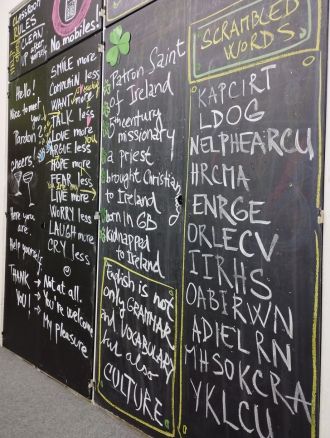 CLASSROOM
RULES
CLEAN
UP after
No mobiles.
Hello!
Nice to meet you.
Pardon?
Cheers
Here you
are.
Help yourself.
THANK
YOU!
Not at all.
You're welcome
My pleasure
SMILE more
COMPLAIN less
WANT more
TALK less
LOVE more
ARGUE less
HOPE more
FEAR less
LIVE more
WORRY less
LAUGH more
CRY less
Patron Saint
of Ireland
5th century
missionary
a priest
brought Christian
to Ireland
born in GB
kidnapped
to Ireland
English is not
only GRAMMAR
and VOCABULARY
but also
CULTURE
SCRAMBLED
WORDS
KAPCIRT
LDOG
NELPHEARCU
HRCMA
ENRGE
ORLECV
IIRHS
OABIRWN
ADIELRN
MHSOKCRA
YKLCU